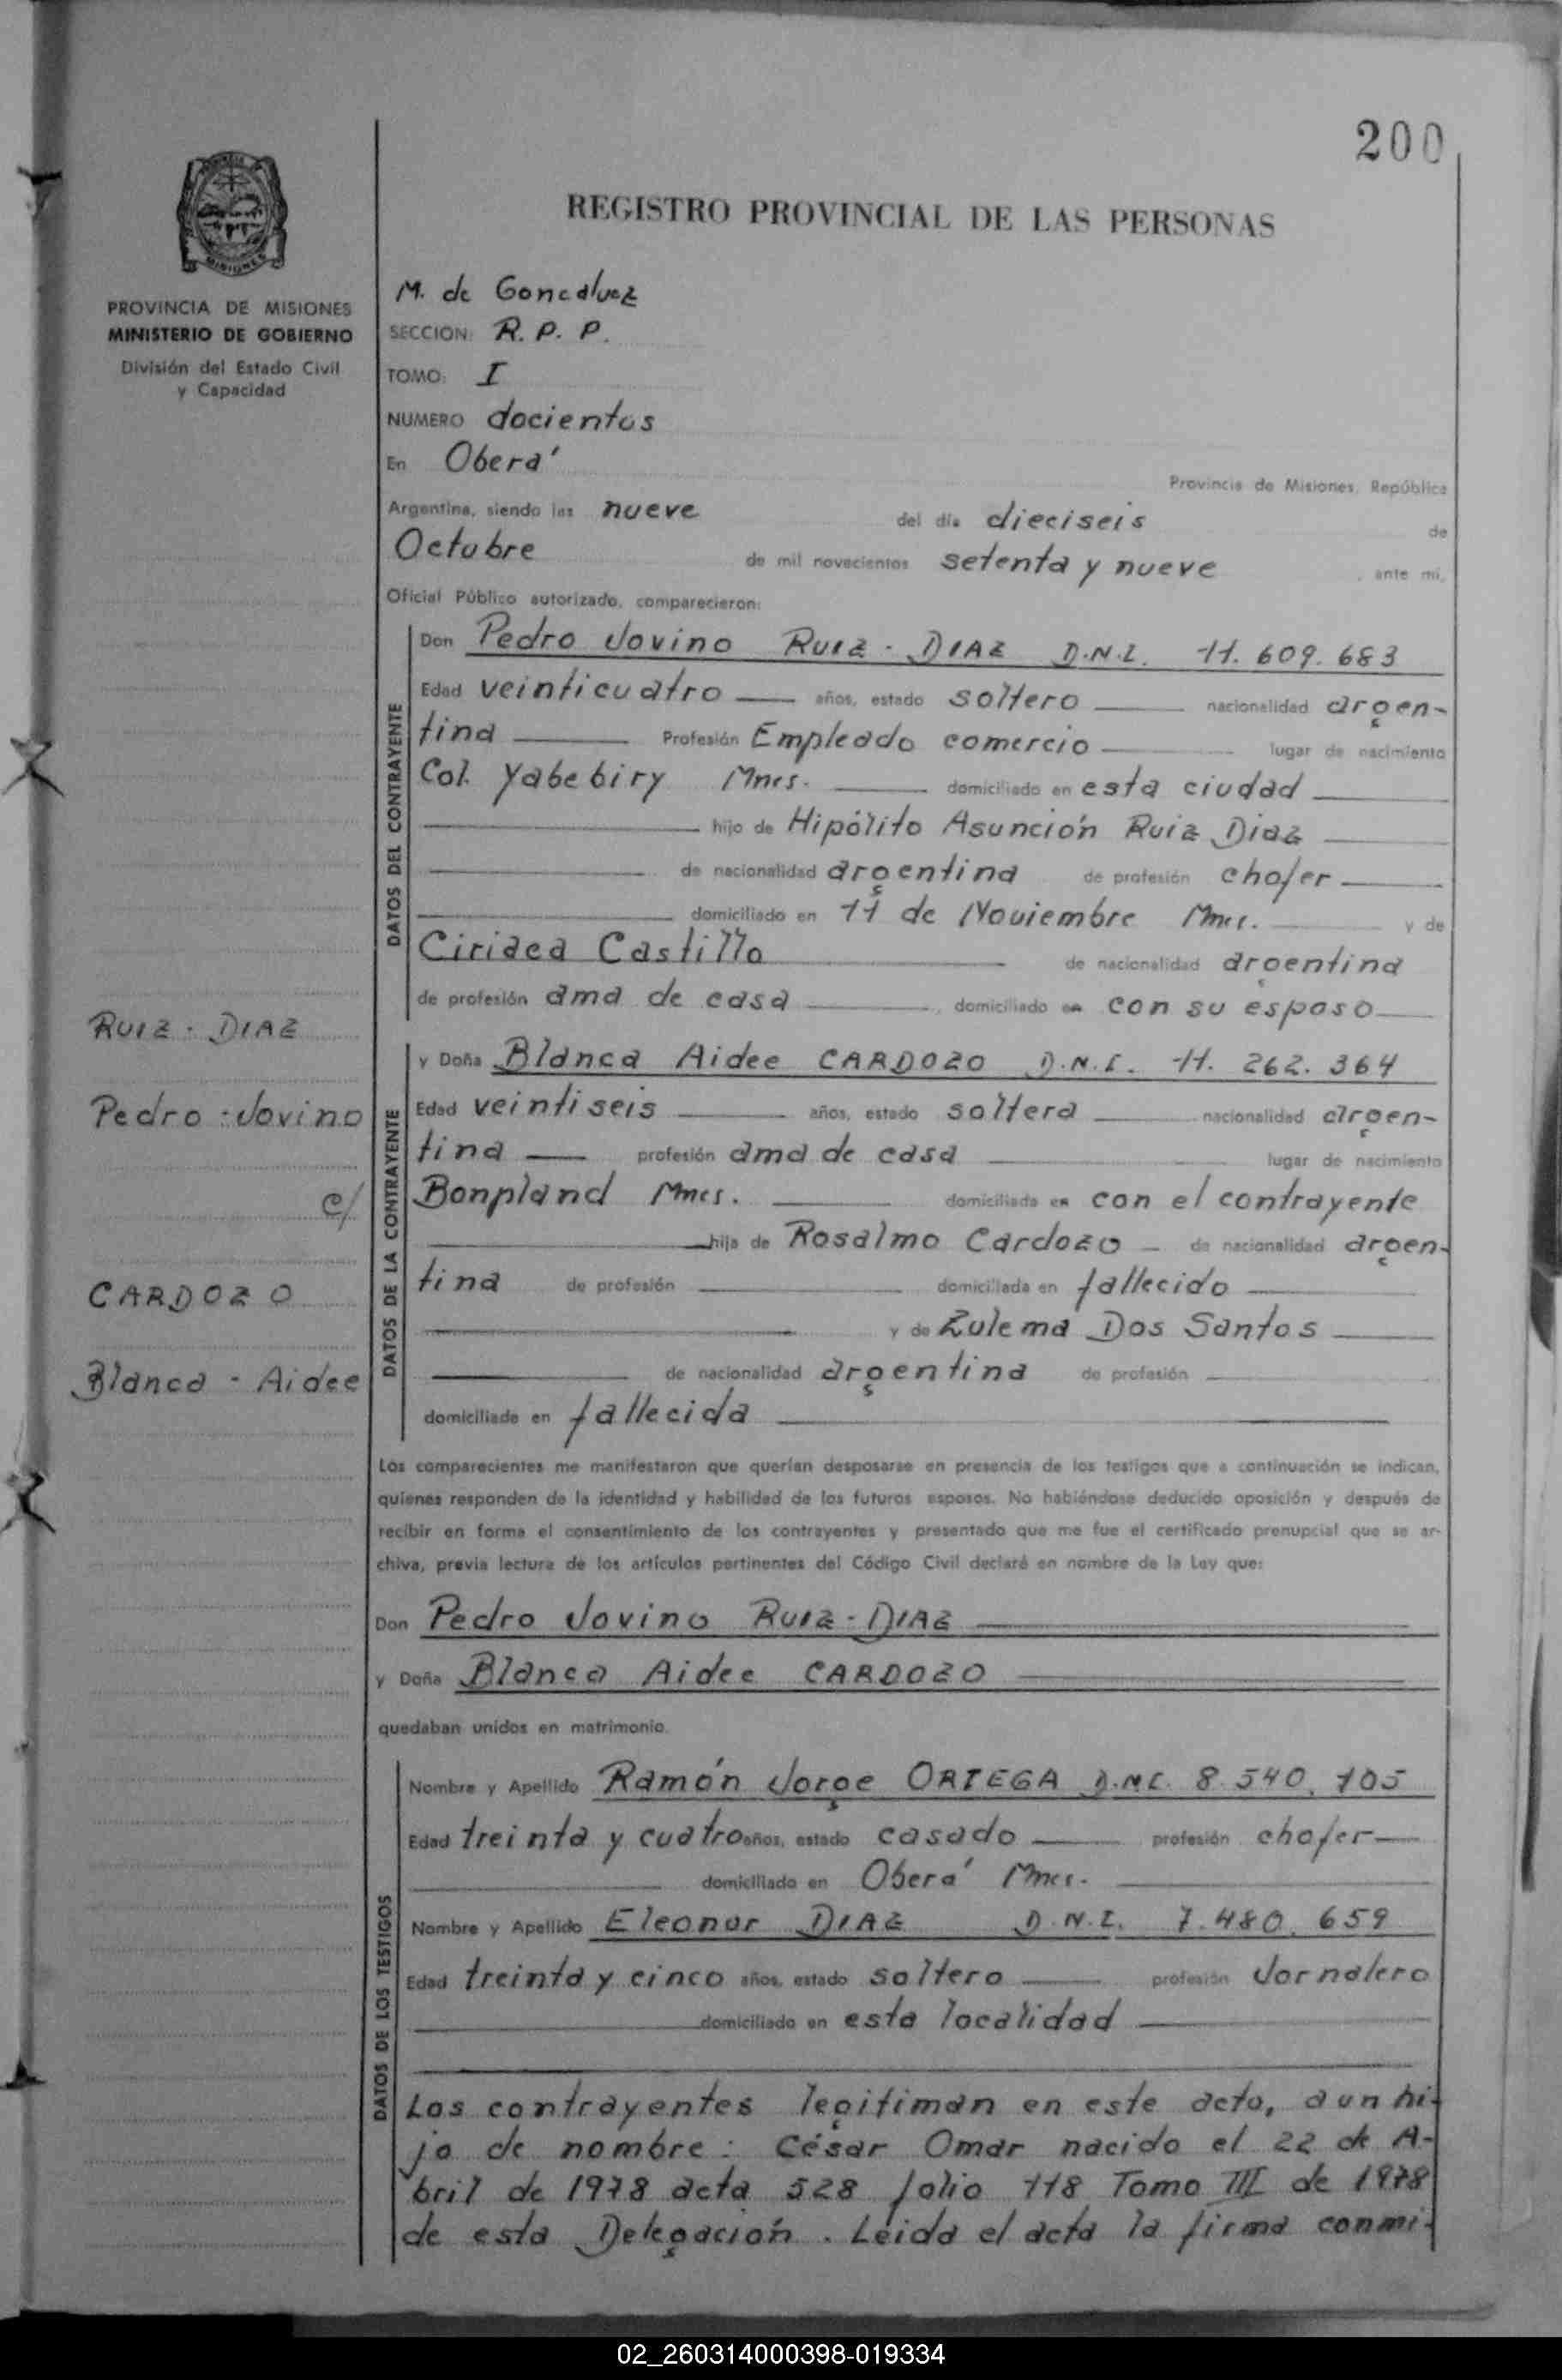 200
REGISTRO PROVINCIAL DE LAS PERSONAS
MISIONES
PROVINCIA DE MISIONES
MINISTERIO DE GOBIERNO
División del Estado Civil
y Capacidad
M. de Goncalvez
SECCION: R. P. P.
TOMO: I
NUMERO docientos
En Oberá
Provincia de Misiones, República
Argentina, siendo las nueve del día dieciseis de
Octubre de mil novecientos setenta y nueve, ante mí,
Oficial Público autorizado, comparecieron:
DATOS DEL CONTRAYENTE
Don Pedro Jovino RUIZ - DIAZ D.N.I. 11.609.683
Edad veinticuatro años, estado soltero nacionalidad argen-
tina Profesión Empleado comercio lugar de nacimiento
Col. Yabebiry Mnes. domiciliado en esta ciudad
hijo de Hipólito Asunción Ruiz Diaz
de nacionalidad argentina de profesión chofer
domiciliado en 11 de Noviembre Mnes. y de
Ciriaca Castillo de nacionalidad argentina
de profesión ama de casa, domiciliado en con su esposo
RUIZ - DIAZ
Pedro - Jovino
c/
CARDOZO
Blanca - Aidee
DATOS DE LA CONTRAYENTE
y Doña Blanca Aidee CARDOZO D.N.I. 11.262.364
Edad veintiseis años, estado soltera nacionalidad argen-
tina profesión ama de casa lugar de nacimiento
Bonpland Mnes. domiciliada en con el contrayente
hija de Rosalmo Cardozo - de nacionalidad argen-
tina de profesión domiciliada en fallecido
y de Zulema Dos Santos
de nacionalidad argentina de profesión
domiciliada en fallecida
Los comparecientes me manifestaron que querían desposarse en presencia de los testigos que a continuación se indican,
quienes responden de la identidad y habilidad de los futuros esposos. No habiéndose deducido oposición y después de
recibir en forma el consentimiento de los contrayentes y presentado que me fue el certificado prenupcial que se ar-
chiva, previa lectura de los artículos pertinentes del Código Civil declaré en nombre de la Ley que:
Don Pedro Jovino RUIZ - DIAZ
y Doña Blanca Aidee CARDOZO
quedaban unidos en matrimonio.
DATOS DE LOS TESTIGOS
Nombre y Apellido Ramón Jorge ORTEGA D.N.I. 8.540.105
Edad treinta y cuatro años, estado casado profesión chofer
domiciliado en Oberá Mnes.
Nombre y Apellido Eleonor DIAZ D.N.I. 7.480.659
Edad treinta y cinco años, estado soltero profesión Jornalero
domiciliado en esta localidad
Los contrayentes legitiman en este acto, a un hi-
jo de nombre: César Omar nacido el 22 de A-
bril de 1978 acta 528 folio 118 Tomo III de 1978
de esta Delegación. Leida el acta la firma conmi-
02_260314000398-019334